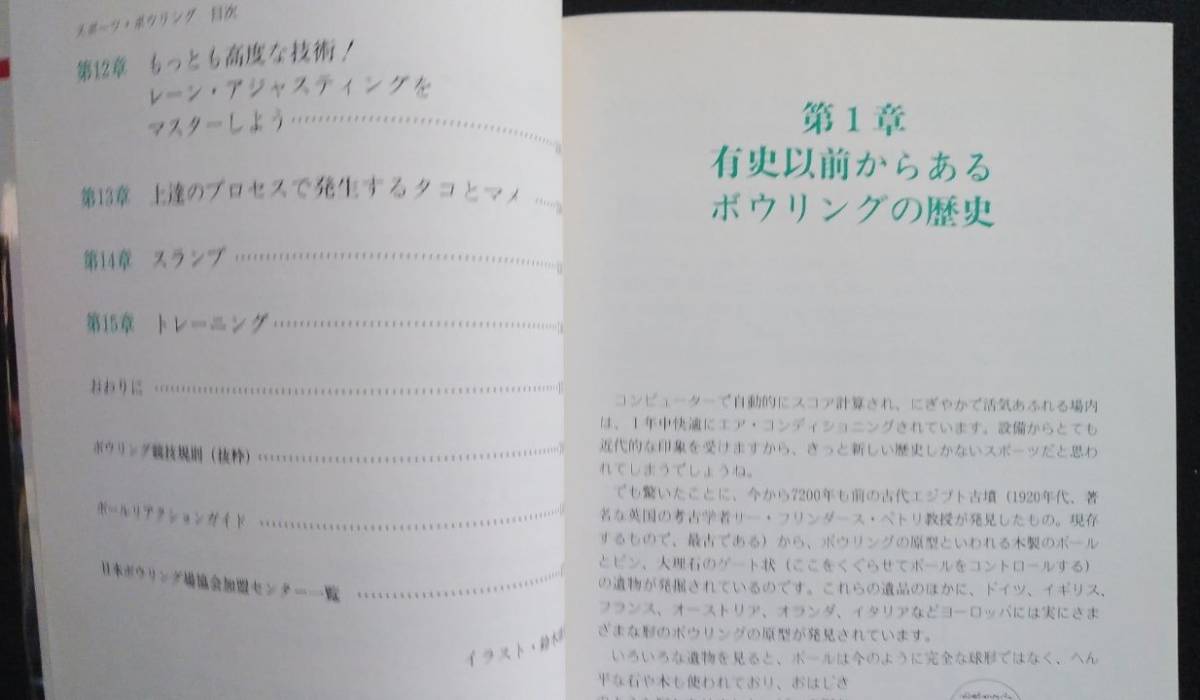 スポーツ・ボウリング 目次
第12章 もっとも高度な技術!
レーン・アジャスティングを
マスターしよう
第13章 上達のプロセスで発生するタコとマメ
第14章 スランプ
第15章 トレーニング
おわりに
ボウリング競技規則(抜粋)
ボールリアクションガイド
日本ボウリング場協会加盟センター一覧
イラスト・鈴木
第1章
有史以前からある
ボウリングの歴史
コンピューターで自動的にスコア計算され、にぎやかで活気あふれる場内
は、1年中快適にエア・コンディショニングされています。設備からとても
近代的な印象を受けますから、きっと新しい歴史しかないスポーツだと思わ
れてしまうでしょうね。
でも驚いたことに、今から7200年も前の古代エジプト古墳(1920年代、著
名な英国の考古学者サー・フリンダース・ペトリ教授が発見したもの。現存
するもので、最古である)から、ボウリングの原型といわれる木製のボール
とピン、大理石のゲート状(ここをくぐらせてボールをコントロールする)
の遺物が発掘されているのです。これらの遺品のほかに、ドイツ、イギリス、
フランス、オーストリア、オランダ、イタリアなどヨーロッパには実にさま
ざまな形のボウリングの原型が発見されています。
いろいろな遺物を見ると、ボールは今のように完全な球形ではなく、へん
平な石や木も使われており、おはじき